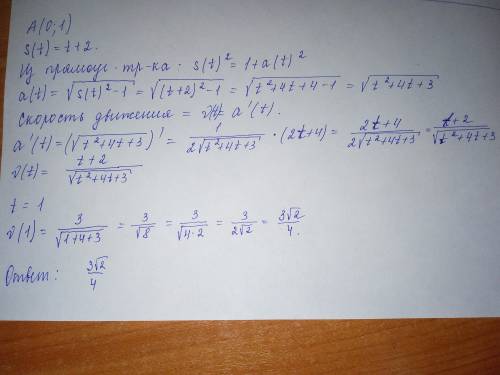 A(0;1)
S(t) = t+2.
Из прямоуг. тр-ка. S(t)² = 1 + a(t)²
a(t) = √(S(t)²-1) = √((t+2)²-1) = √(t²+4t+4-1) = √(t²+4t+3)
Скорость движения = a'(t).
a'(t) = (√(t²+4t+3))' = 1/(2√(t²+4t+3)) · (2t+4) = (2t+4)/(2√(t²+4t+3)) = (t+2)/√(t²+4t+3)
v(t) = (t+2)/√(t²+4t+3)
t = 1
v(1) = 3/√(1+4+3) = 3/√8 = 3/√(4·2) = 3/(2√2) = 3√2/4.
Ответ: 3√2/4